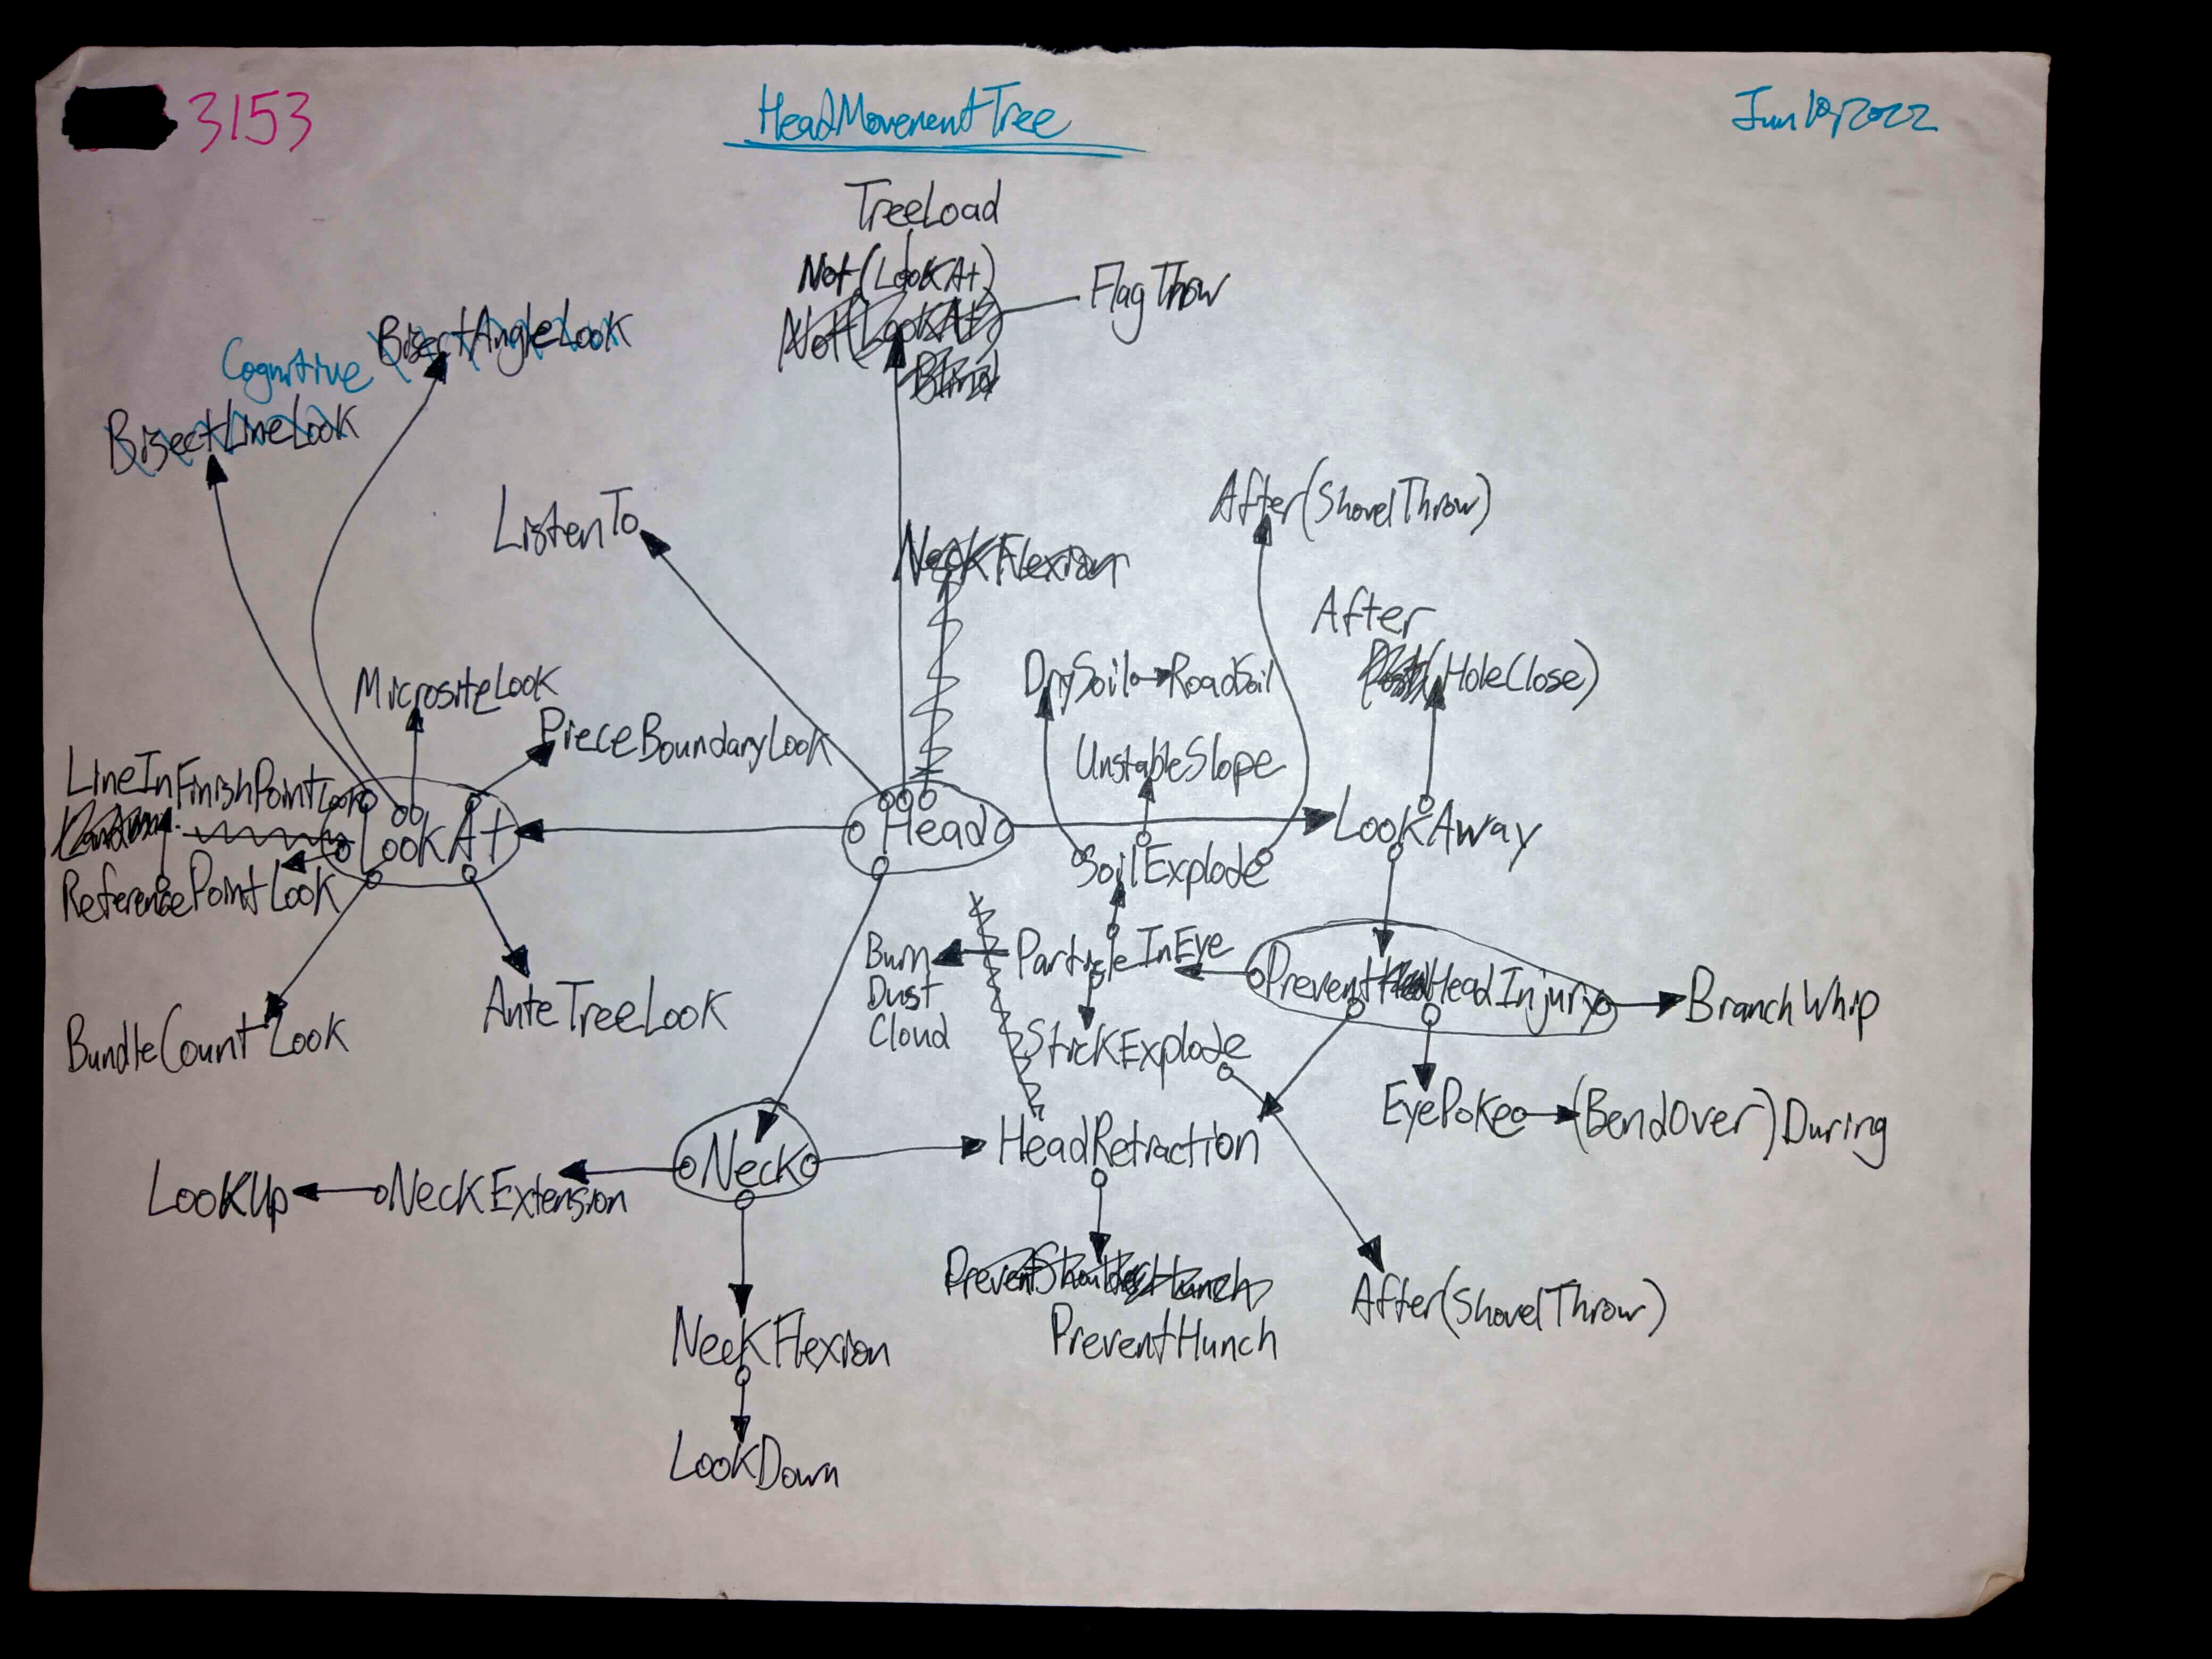 3153
HeadMovementTree
TreeLoad
Not(LookAt)
Not(LookAt)
Blind
FlagThrow
Cognitive
BisectAngleLook
BisectLineLook
ListenTo
NeckFlexion
After(ShovelThrow)
After
(HoleClose)
DrySoil
RoadSoil
UnstableSlope
MicrositeLook
PieceBoundaryLook
LineInFinishPointLook
LookAt
Head
LookAway
SoilExplode
ReferencePointLook
BundleCountLook
AnteTreeLook
Burn
Dust
Cloud
ParticleInEye
PreventHeadInjury
BranchWhip
StickExplode
EyePoke
(BendOver)During
Neck
HeadRetraction
NeckExtension
LookUp
PreventShoulderHunch
PreventHunch
After(ShovelThrow)
NeckFlexion
LookDown